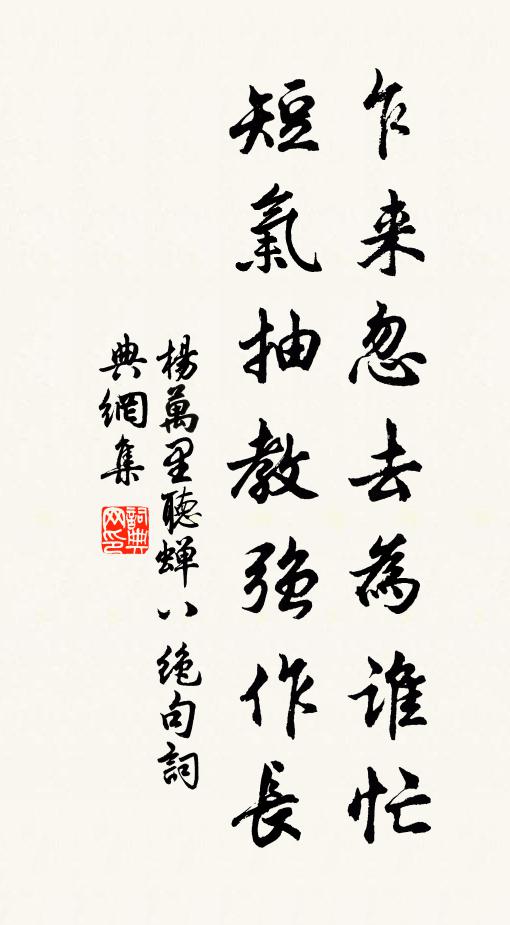 乍来忽去為誰忙
短氣抽教強作長
楊萬里聽蝉八絶句詞
典網集
詞典
网印